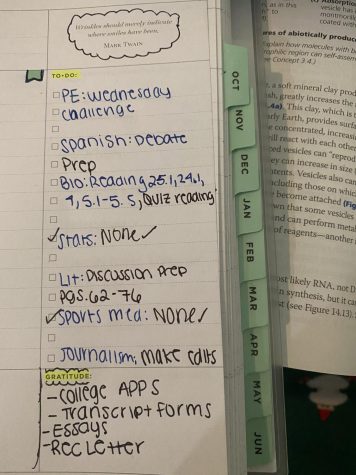 Wrinkles should merely indicate
where smiles have been.
MARK TWAIN
TO-DO:
PE: Wednesday
challenge
Spanish: Debate
Prep
BIO: Reading 25.1, 24.1,
4, 5.1-5.5, QUIZ reading
✓ Stats: None ✓
Lit: Discussion Prep
PGS. 62-76
✓ Sports med: None ✓
Journalism: make edits
GRATITUDE:
- College APPS
- Transcript forms
- Essays
- Rec Letter
OCT
NOV
DEC
JAN
FEB
MAR
APR
MAY
JUN
Absorption
as in this
vesicle has
n" to
montmorill
coated with
eas of abiotically produce
xplain how molecules with
rophilic region can self-assem
e Concept 3.4.)
r, a soft mineral clay prod
sh, greatly increases the r
.4a). This clay, which is t
rly Earth, provides surfa
e concentrated, increasi
will react with each other
ed vesicles can "reprod
ey can increase in size (
ntents. Vesicles also ca
cluding those on whic
e become attached (Fig
wn that some vesicles
nd can perform metab
of reagents—another i
ost likely RNA, not D
n synthesis, but it ca
st (see Figure 14.13).